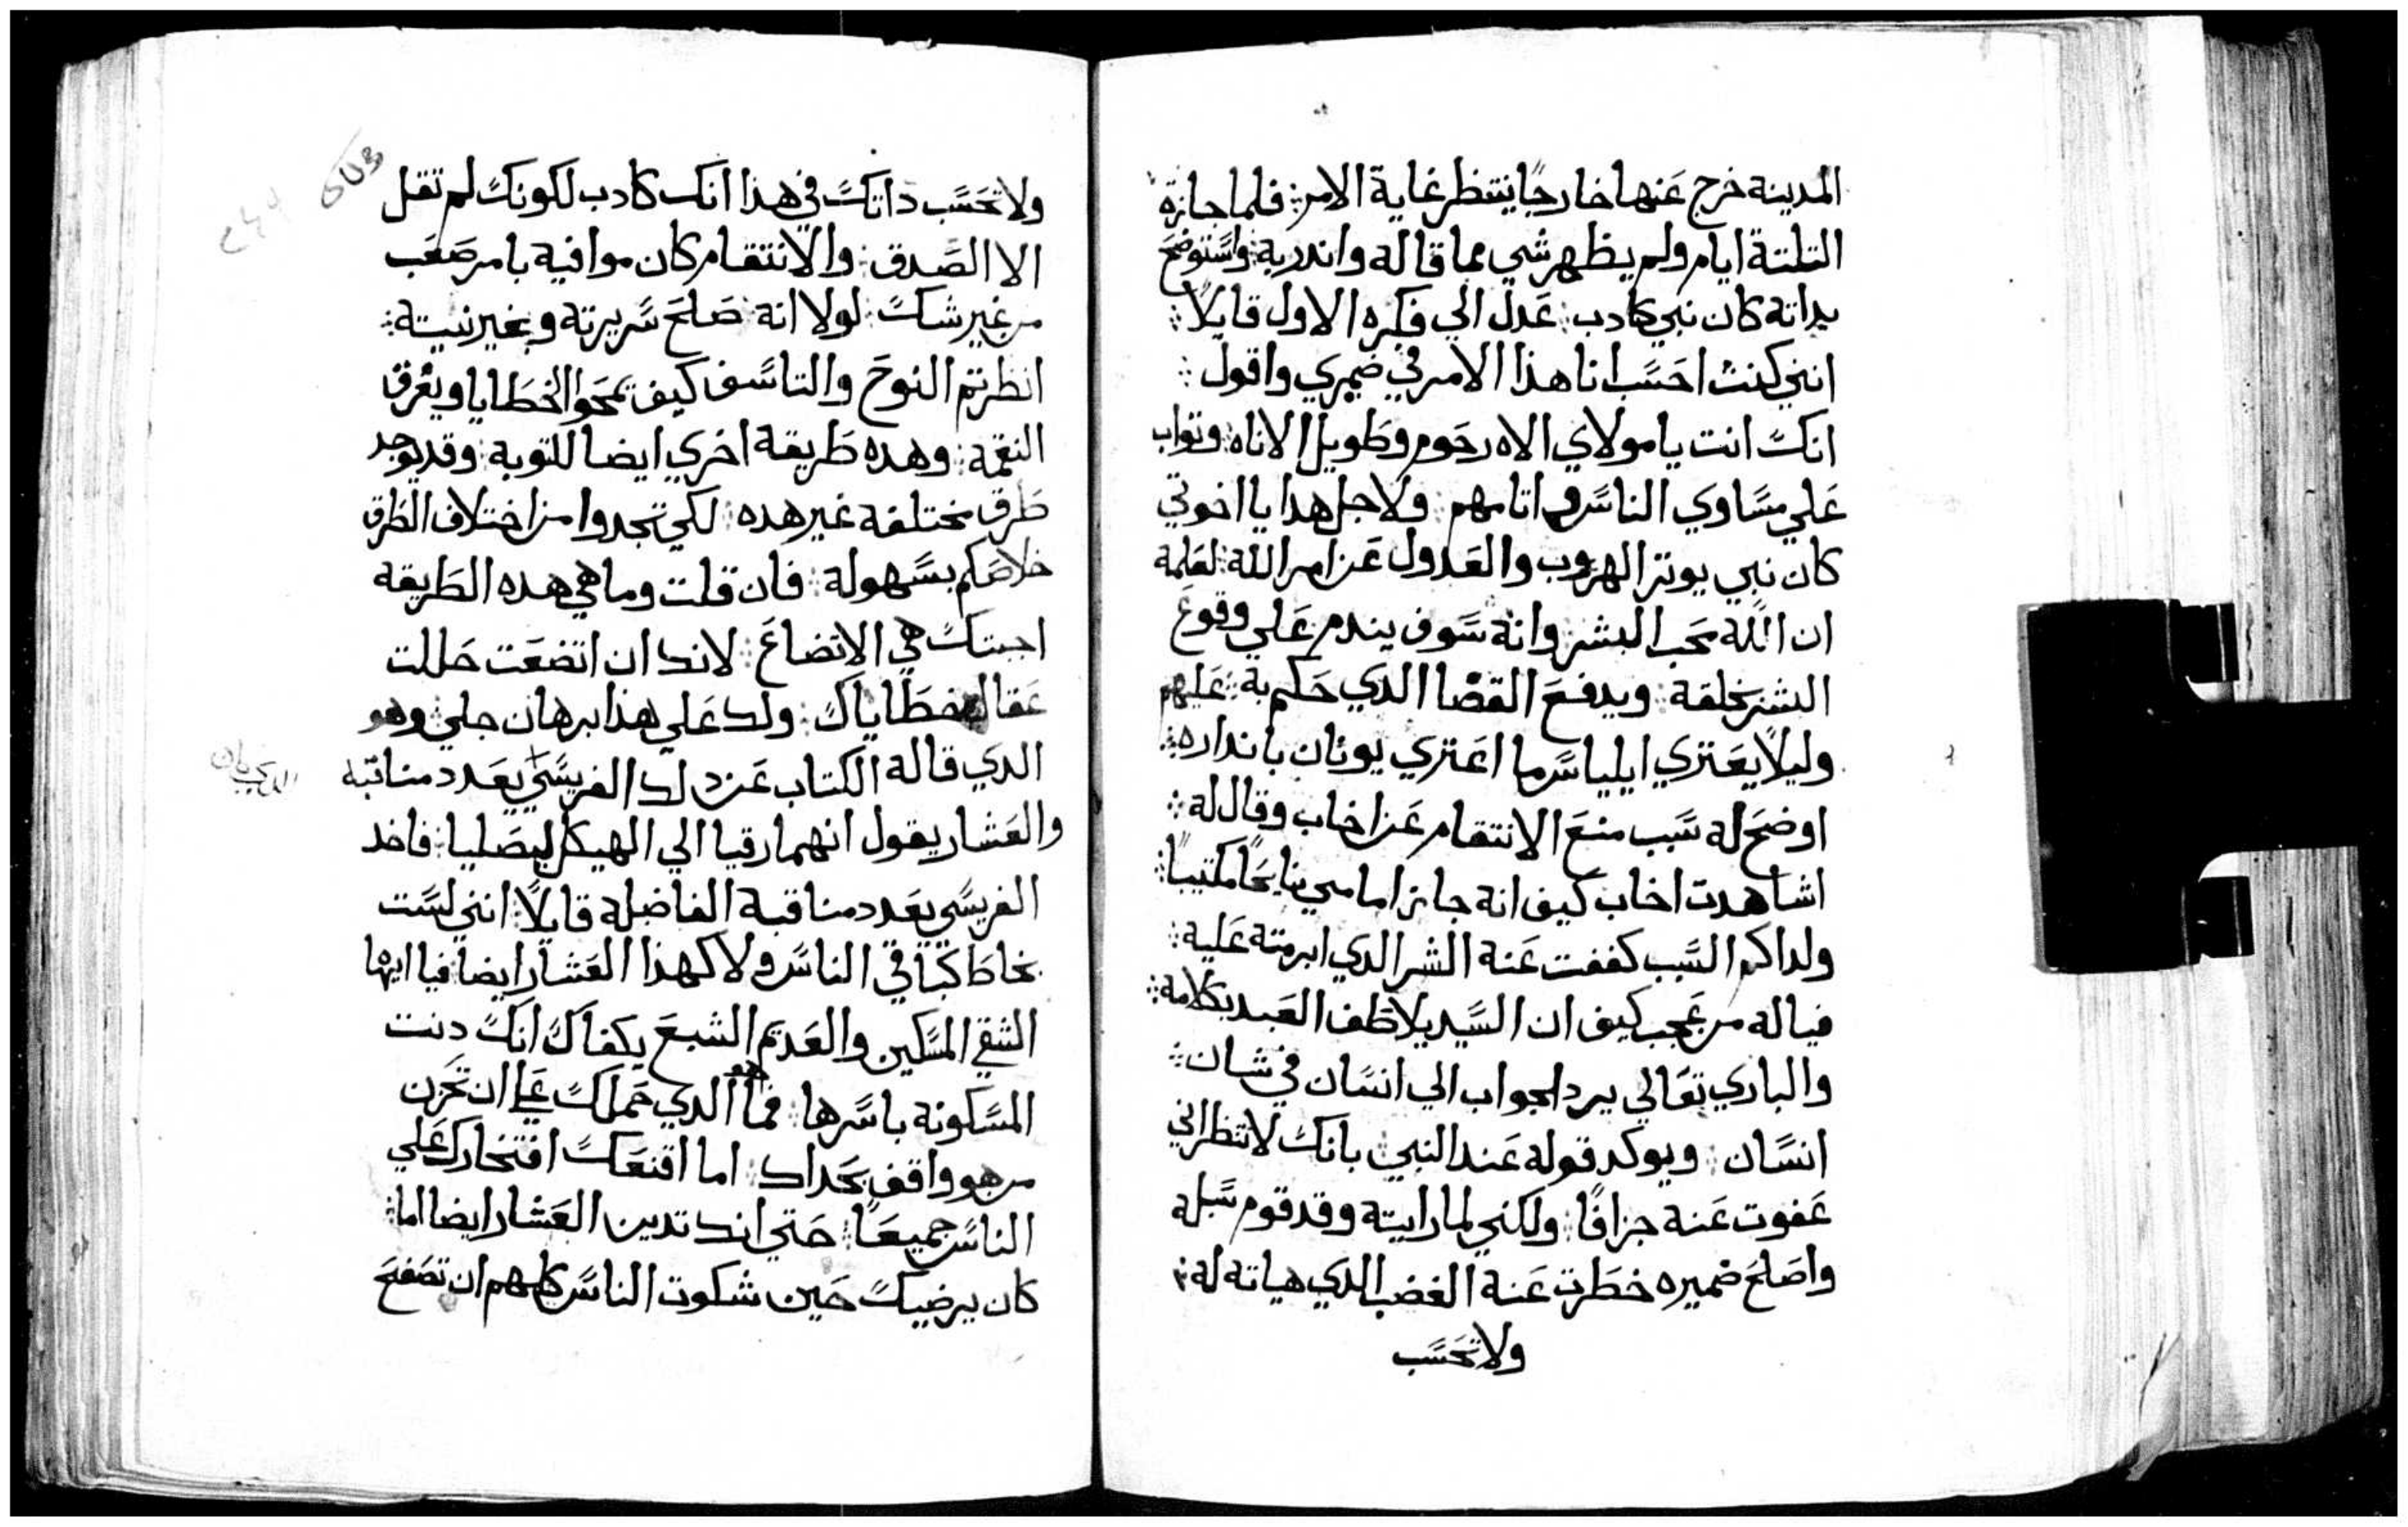 المدينة خرج عنها خارجًا ينتظر غاية الامر فلما جازة
التلتة ايام ولم يظهر شي مما قاله واندر به واستوضح
بداته كان نبي كادب عدل الي فكره الاول قايلاً
انني كنت احسب انا هذا الامر في ضميري واقول
انك انت يا مولاي الاه رحوم وطويل الاناه وتواب
علي مساوي الناس واتامهم ولاجل هدا يا اخوتي
كان نبي يوتر الهروب والعدول عن امر الله لعلمه
ان الله محب البشر وانه سوف يندم علي وقوع
الشر بخلقه ويدفع القضا الدي حكم به عليهم
وليلا يعتري ايلياس ما اعتري يونان بانداره
اوضح له سبب منع الانتقام عن اخاب وقال له
اشاهدت اخاب كيف انه جاز امامي نايحًا مكتيبًا
ولداكم السبب كففت عنه الشر الدي ابرمته عليه
فياله من عجب كيف ان السيد يلاطف العبد بكلامه
والباري تعالي يرد الجواب الي انسان في شان
انسان ويوكد قوله عند النبي بانك لا تنظر اني
عفوت عنه جزافًا ولكني لما رايته وقد قوم سبله
واصلح ضميره خطرت عنه الغضب الدي هياته له
ولا تحسب
ولا تحسب داتك في هذا انك كادب لكونك لم تقل
الا الصدق والانتقام كان موافيه بامر صعب
من غير شك لولا انه صلح سريرته وبخير نيته
انظرتم النوح والتاسف كيف تمحو الخطايا ويغرق
النقمة وهده طريقة اخري ايضا للتوبة وقد يوجد
طرق مختلفة غير هده لكي تجدوا من اختلاف الطرق
خلاصكم بسهولة فان قلت وما هي هده الطريقه
اجبتك هي الاتضاع لانك ان اتضعت حللت
عقال خطاياك ولك علي هذا برهان جلي وهو
الدي قاله الكتاب عن دلك الفريسي يعدد مناقبه
والعشار يقول انهما رقيا الي الهيكل ليصليا فاخد
الفريسي يعدد مناقبه الفاضلة قايلاً انني لست
بخاط كباقي الناس ولا كهذا العشار ايضا فيا ايها
الشقي المسكين والعديم الشبع يكفاك انك دنت
المسكونة باسرها فما هو الدي حملك علي ان تحزن
من هو واقف بحداك اما اقنعك افتخارك علي
الناس جميعًا حتي انك تدين العشار ايضا اما
كان يرضيك حين شكوت الناس كلهم ان تصفح